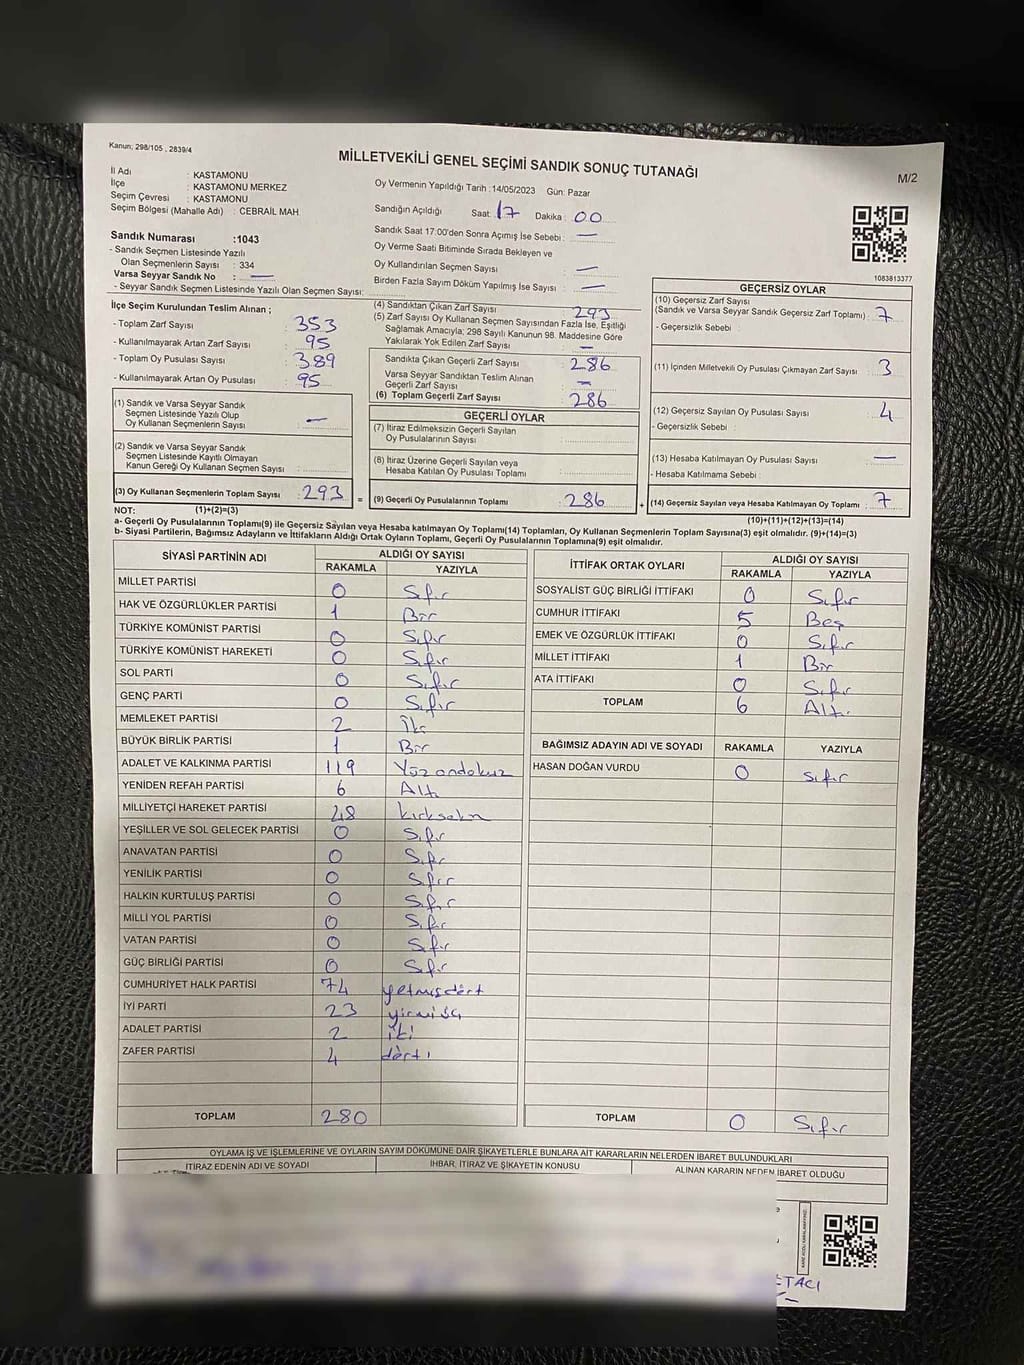 Kanun; 298/105 , 2839/4
MİLLETVEKİLİ GENEL SEÇİMİ SANDIK SONUÇ TUTANAĞI
M/2
İl Adı : KASTAMONU
İlçe : KASTAMONU MERKEZ
Seçim Çevresi : KASTAMONU
Seçim Bölgesi (Mahalle Adı) : CEBRAİL MAH
Oy Vermenin Yapıldığı Tarih :14/05/2023 Gün: Pazar
Sandığın Açıldığı Saat: 17 Dakika : 00
Sandık Saat 17:00'den Sonra Açımış İse Sebebi : —
Oy Verme Saati Bitiminde Sırada Bekleyen ve
Oy Kullandırılan Seçmen Sayısı : —
Birden Fazla Sayım Döküm Yapılmış İse Sayısı : —
Sandık Numarası :1043
- Sandık Seçmen Listesinde Yazılı
Olan Seçmenlerin Sayısı : 334
Varsa Seyyar Sandık No : —
- Seyyar Sandık Seçmen Listesinde Yazılı Olan Seçmen Sayısı:
1083813377
İlçe Seçim Kurulundan Teslim Alınan ;
- Toplam Zarf Sayısı : 353
- Kullanılmayarak Artan Zarf Sayısı : 95
- Toplam Oy Pusulası Sayısı : 389
- Kullanılmayarak Artan Oy Pusulası : 95
(1) Sandık ve Varsa Seyyar Sandık
Seçmen Listesinde Yazılı Olup
Oy Kullanan Seçmenlerin Sayısı : —
(2) Sandık ve Varsa Seyyar Sandık
Seçmen Listesinde Kayıtlı Olmayan
Kanun Gereği Oy Kullanan Seçmen Sayısı :
(3) Oy Kullanan Seçmenlerin Toplam Sayısı : 293 =
(4) Sandıktan Çıkan Zarf Sayısı : 293
(5) Zarf Sayısı Oy Kullanan Seçmen Sayısından Fazla İse, Eşitliği
Sağlamak Amacıyla; 298 Sayılı Kanunun 98. Maddesine Göre
Yakılarak Yok Edilen Zarf Sayısı : —
Sandıkta Çıkan Geçerli Zarf Sayısı : 286
Varsa Seyyar Sandıktan Teslim Alınan
Geçerli Zarf Sayısı : —
(6) Toplam Geçerli Zarf Sayısı : 286
GEÇERLİ OYLAR
(7) İtiraz Edilmeksizin Geçerli Sayılan
Oy Pusulalarının Sayısı :
(8) İtiraz Üzerine Geçerli Sayılan veya
Hesaba Katılan Oy Pusulası Toplamı :
(9) Geçerli Oy Pusulalarının Toplamı : 286 +
GEÇERSİZ OYLAR
(10) Geçersiz Zarf Sayısı
(Sandık ve Varsa Seyyar Sandık Geçersiz Zarf Toplamı) : 7
- Geçersizlik Sebebi :
(11) İçinden Milletvekili Oy Pusulası Çıkmayan Zarf Sayısı : 3
(12) Geçersiz Sayılan Oy Pusulası Sayısı : 4
- Geçersizlik Sebebi :
(13) Hesaba Katılmayan Oy Pusulası Sayısı : —
- Hesaba Katılmama Sebebi :
(14) Geçersiz Sayılan veya Hesaba Katılmayan Oy Toplamı : 7
NOT: (1)+(2)=(3)
(10)+(11)+(12)+(13)=(14)
a- Geçerli Oy Pusulalarının Toplamı(9) ile Geçersiz Sayılan veya Hesaba katılmayan Oy Toplamı(14) Toplamları, Oy Kullanan Seçmenlerin Toplam Sayısına(3) eşit olmalıdır. (9)+(14)=(3)
b- Siyasi Partilerin, Bağımsız Adayların ve İttifakların Aldığı Ortak Oyların Toplamı, Geçerli Oy Pusulalarının Toplamına(9) eşit olmalıdır.
SİYASİ PARTİNİN ADI ALDIĞI OY SAYISI
RAKAMLA YAZIYLA
MİLLET PARTİSİ 0 Sıfır
HAK VE ÖZGÜRLÜKLER PARTİSİ 1 Bir
TÜRKİYE KOMÜNİST PARTİSİ 0 Sıfır
TÜRKİYE KOMÜNİST HAREKETİ 0 Sıfır
SOL PARTİ 0 Sıfır
GENÇ PARTİ 0 Sıfır
MEMLEKET PARTİSİ 2 İki
BÜYÜK BİRLİK PARTİSİ 1 Bir
ADALET VE KALKINMA PARTİSİ 119 Yüzondokuz
YENİDEN REFAH PARTİSİ 6 Altı
MİLLİYETÇİ HAREKET PARTİSİ 48 kırksekiz
YEŞİLLER VE SOL GELECEK PARTİSİ 0 Sıfır
ANAVATAN PARTİSİ 0 Sıfır
YENİLİK PARTİSİ 0 Sıfır
HALKIN KURTULUŞ PARTİSİ 0 Sıfır
MİLLİ YOL PARTİSİ 0 Sıfır
VATAN PARTİSİ 0 Sıfır
GÜÇ BİRLİĞİ PARTİSİ 0 Sıfır
CUMHURİYET HALK PARTİSİ 74 yetmişdört
İYİ PARTİ 23 yirmiüç
ADALET PARTİSİ 2 iki
ZAFER PARTİSİ 4 dört
TOPLAM 280
İTTİFAK ORTAK OYLARI ALDIĞI OY SAYISI
RAKAMLA YAZIYLA
SOSYALİST GÜÇ BİRLİĞİ İTTİFAKI 0 Sıfır
CUMHUR İTTİFAKI 5 Beş
EMEK VE ÖZGÜRLÜK İTTİFAKI 0 Sıfır
MİLLET İTTİFAKI 1 Bir
ATA İTTİFAKI 0 Sıfır
TOPLAM 6 Altı
BAĞIMSIZ ADAYIN ADI VE SOYADI RAKAMLA YAZIYLA
HASAN DOĞAN VURDU 0 Sıfır
TOPLAM 0 Sıfır
OYLAMA İŞ VE İŞLEMLERİNE VE OYLARIN SAYIM DÖKÜMÜNE DAİR ŞİKAYETLERLE BUNLARA AİT KARARLARIN NELERDEN İBARET BULUNDUKLARI
İTİRAZ EDENİN ADI VE SOYADI İHBAR, İTİRAZ VE ŞİKAYETİN KONUSU ALINAN KARARIN NEDEN İBARET OLDUĞU